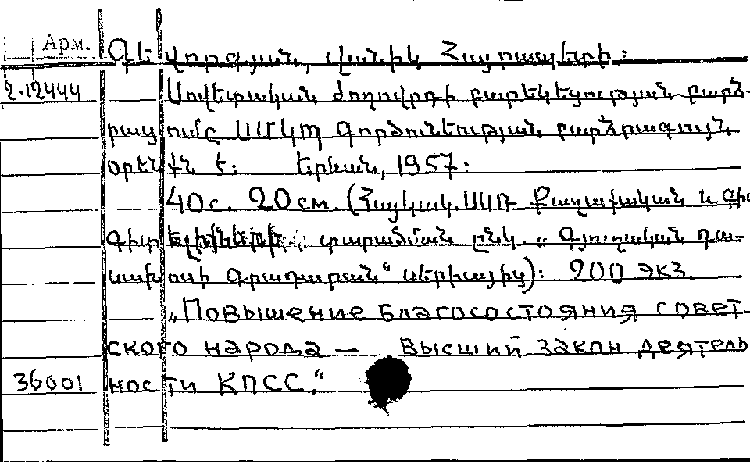 Арм. Գևորգյան, Վանիկ Հայրապետի:
2.12444 Սովետական ժողովրդի բարեկեցության բարձ-
րացումը ՍՄԿՊ գործունեության բարձրագույն
օրենքն է: Երևան, 1957:
40с. 20см. (Հայկակ. ՍՍՌ Քաղաքական և գի
գիտելիքների տարածման ընկ. „Գյուղական դա-
սախոսի գրադարան“ սերիայից): 200 экз.
„Повышение благосостояния совет-
ского народа — высший закон деятель
36001 ности КПСС.“